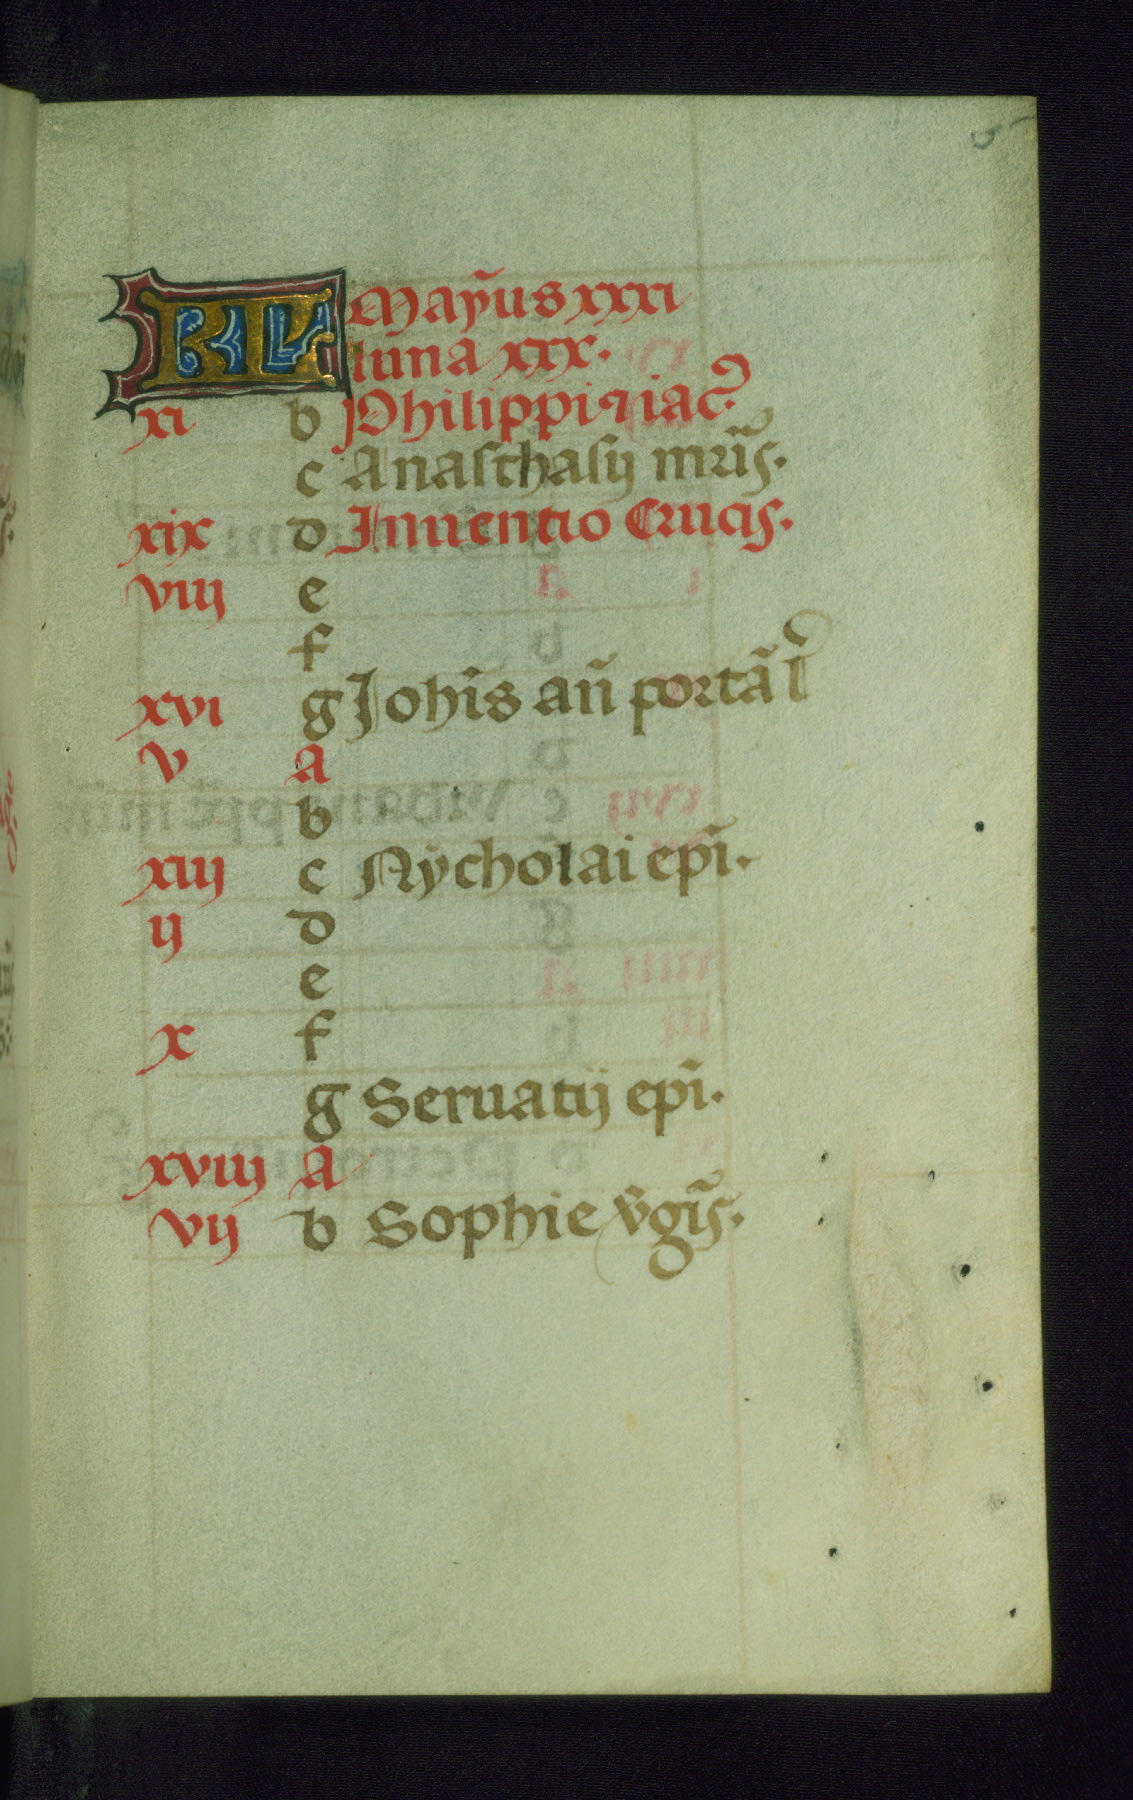 KL Maÿus xxxi
luna xxx.
xi b Philippi ⁊ iac̄ꝰ.
c Anasthasij mr̄is.
xix d Inuentio Crucis.
viij e
f
xvi g Joh̄is an̄ portā l
v a
b
xiij c Nÿcholai ep̄i.
ij d
e
x f
g Seruatij ep̄i.
xviij A
vij b Sophie v̄gīs.